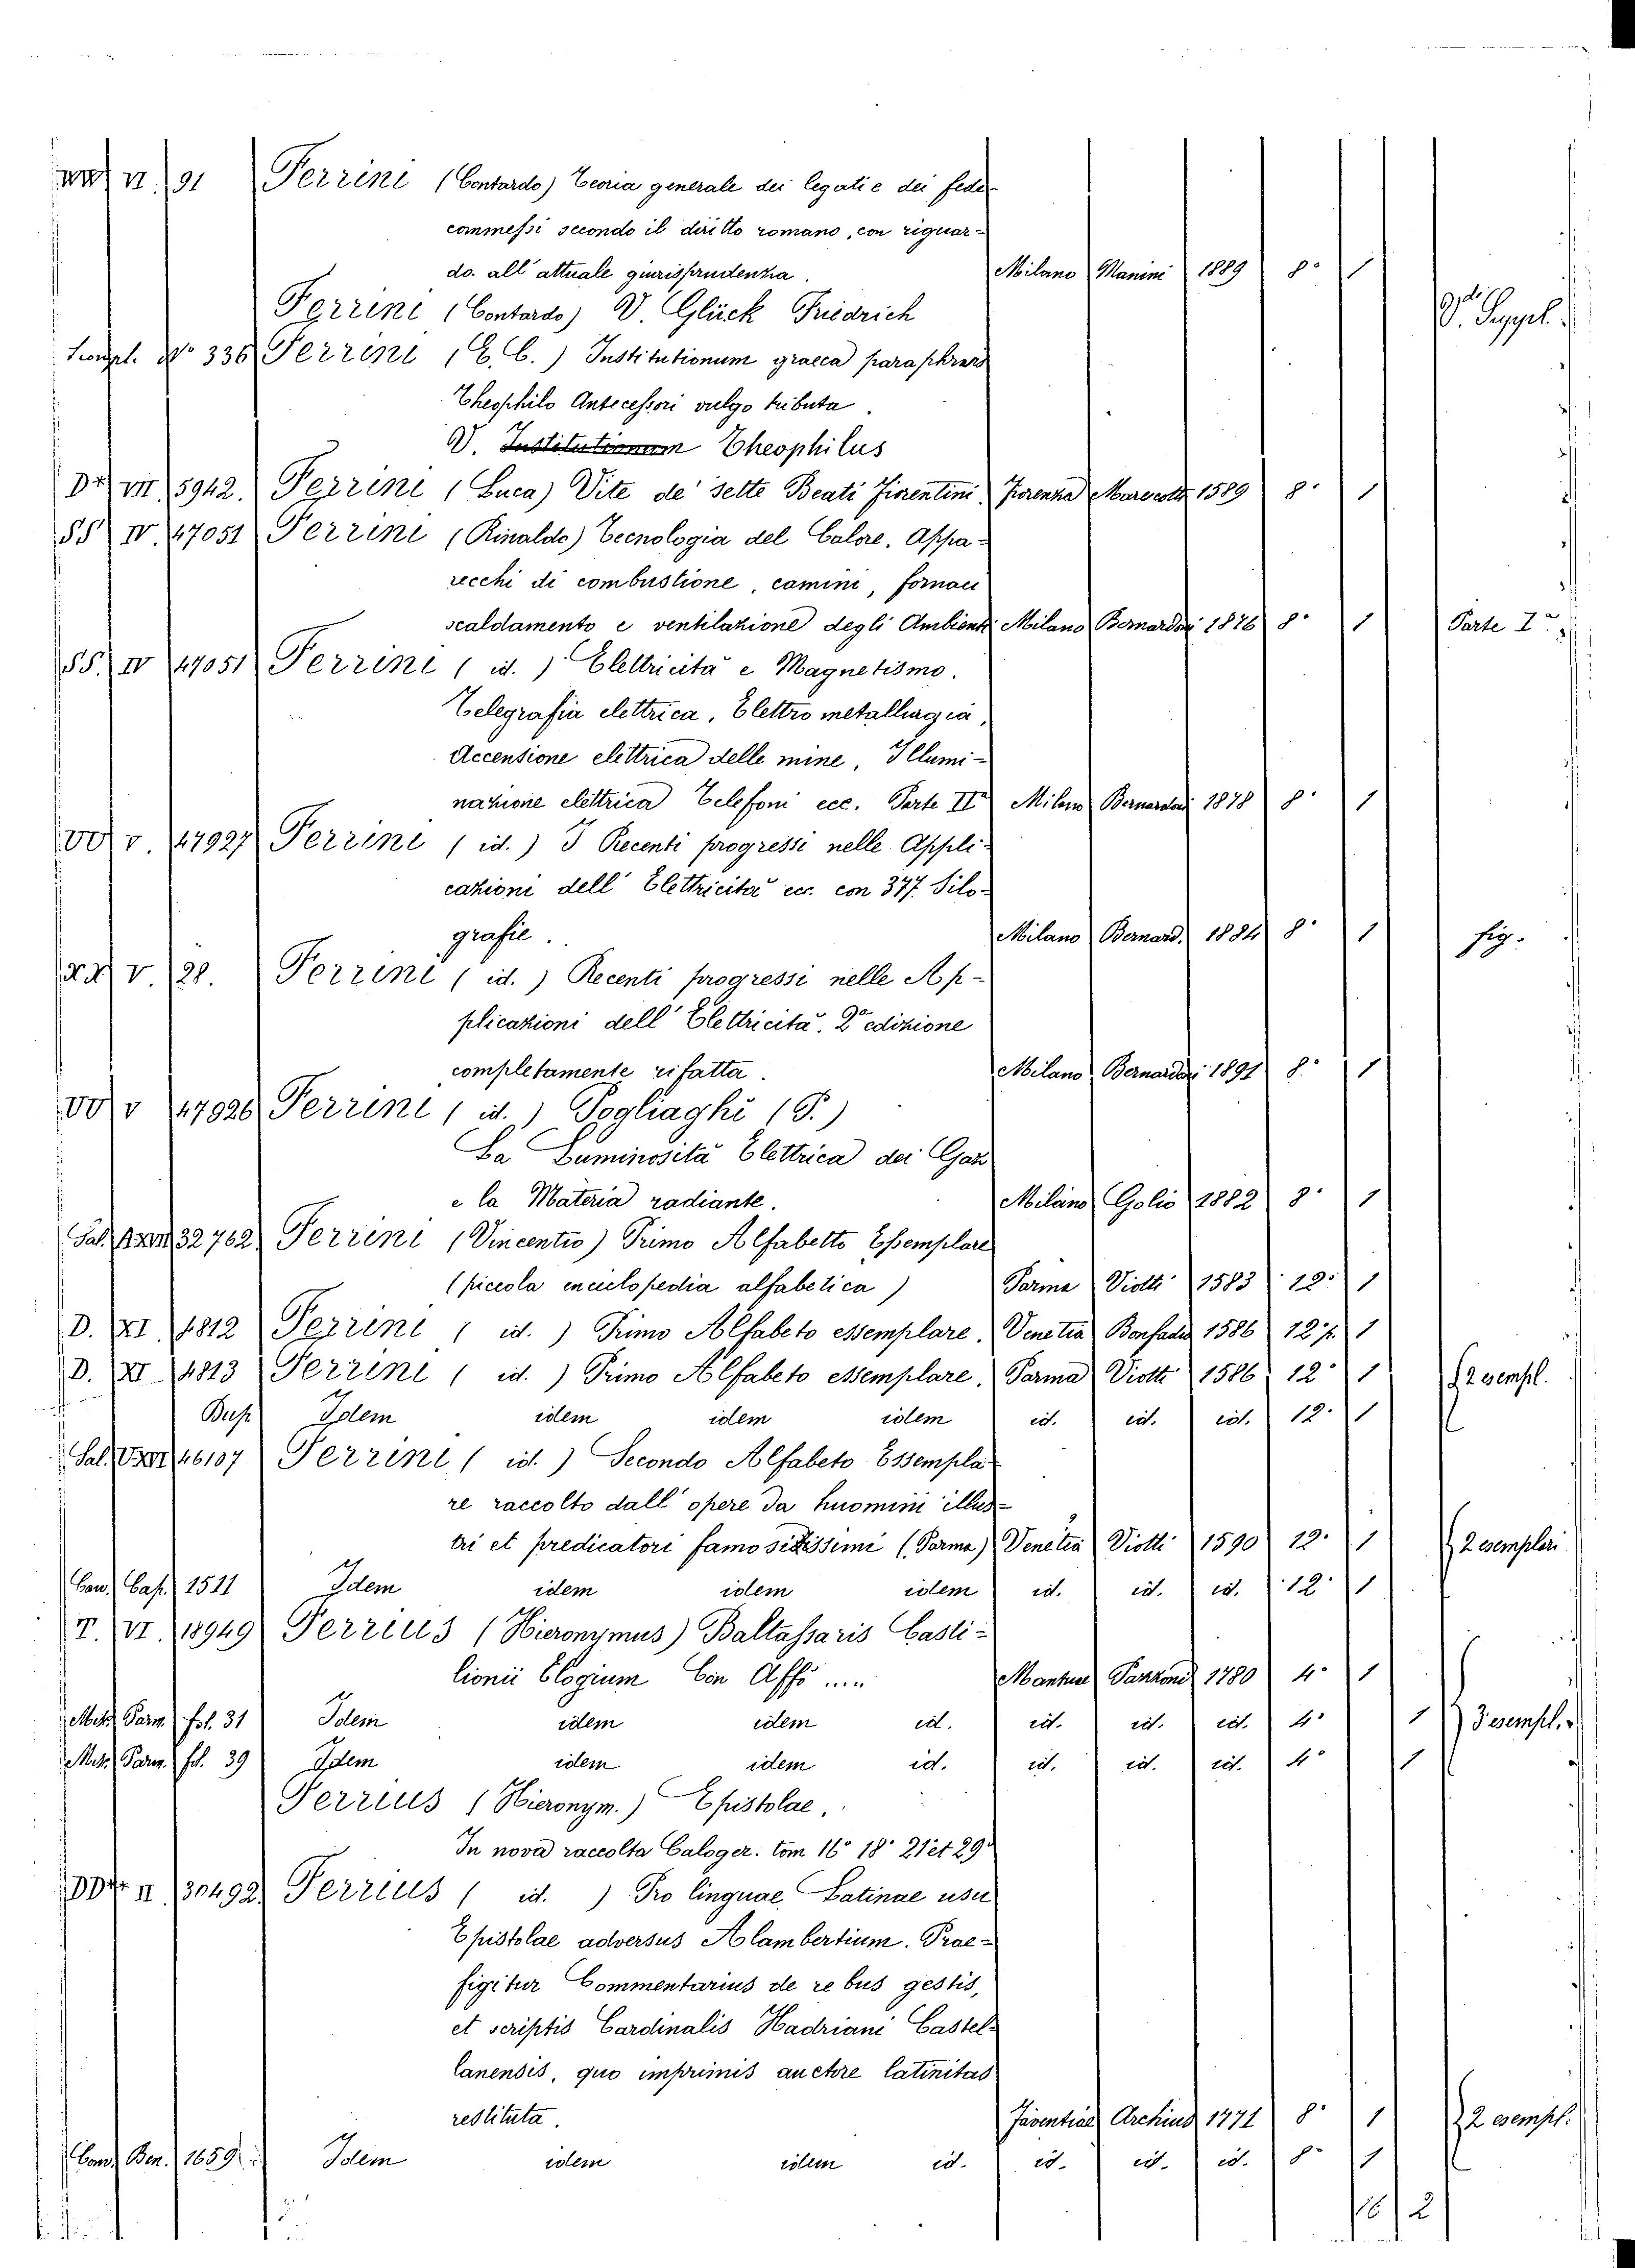 VI. 91 Ferrini (Contardo) Teoria generale dei legati e dei fede-
commessi secondo il diritto romano, con riguar-
do all'attuale giurisprudenza. Milano Manini 1889 8° 1
Ferrini (Contardo) V. Glück Friedrich V. Suppl.
N° 336 Ferrini (E. C.) Institutionum graeca paraphrasis
Theophilo Antecessori vulgo tributa.
V. Institutionum Theophilus
VII. 5942. Ferrini (Luca) Vite de' sette Beati Fiorentini. Fiorenza Marescotti 1589 8° 1
SS IV. 47051 Ferrini (Rinaldo) Tecnologia del Calore. Appa-
recchi di combustione, camini, fornaci
scaldamento e ventilazione degli Ambienti Milano Bernardoni 1876 8° 1 Parte Iª
SS. IV 47051 Ferrini (id.) Elettricità e Magnetismo.
Telegrafia elettrica, Elettro metallurgia,
Accensione elettrica delle mine, Illumi-
nazione elettrica Telefoni ecc. Parte IIª Milano Bernardoni 1878 8° 1
VV V. 47927 Ferrini (id.) I Recenti progressi nelle Appli-
cazioni dell'Elettricità ecc. con 377. Silo-
grafie. Milano Bernard. 1884 8° 1 fig.
V. 28. Ferrini (id.) Recenti progressi nelle Ap-
plicazioni dell'Elettricità. 2ª edizione
completamente rifatta. Milano Bernardoni 1891 8° 1
VV V 47926 Ferrini (id.) Pogliaghi (P.)
La Luminosità Elettrica dei Gaz
e la Materia radiante. Milano Golio 1882 8° 1
Sal. 32762 Ferrini (Vincentio) Primo Alfabetto Essemplare
(piccola enciclopedia alfabetica) Parma Viotti 1583 12° 1
D. XI 4812 Ferrini (id.) Primo Alfabeto essemplare. Venetia Bonfadio 1586 12° 1
D. XI 4813 Ferrini (id.) Primo Alfabeto essemplare. Parma Viotti 1586 12° 1 2 esempl.
Idem idem idem idem id. id. id. 12° 1
Sal. 46107 Ferrini (id.) Secondo Alfabeto Essempla-
re raccolto dall'opere da huomini illus-
tri et predicatori famosissimi (Parma) Venetia Viotti 1590 12° 1 2 esemplari
Cap. 1511 Idem idem idem idem id. id. id. 12° 1
T. VI. 18949 Ferrius (Hieronymus) Baltassaris Casti-
lionii Elogium Con Affò .... Mantuae Pazzoni 1780 4° 1
Parm. fol. 31 Idem idem idem id. id. id. id. 4° 1 3 esempl.
Parm. fol. 39 Idem idem idem id. id. id. id. 4° 1
Ferrius (Hieronym.) Epistolae,
In nova raccolta Caloger. tom 16° 18° 21 et 29°
II 30492 Ferrius (id.) Pro linguae Latinae usu
Epistolae adversus Alambertium. Prae-
figitur Commentarius de rebus gestis,
et scriptis Cardinalis Hadriani Castel-
lanensis, quo imprimis auctore latinitas
restituta. Faventiae Archius 1771 8° 1 2 esempl.
Ben. 1659 Idem idem idem id. id. id. id. 8° 1
2